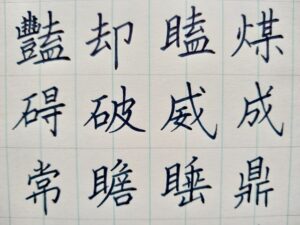 豔却瞌煤
碍破威成
常瞻睡鼎